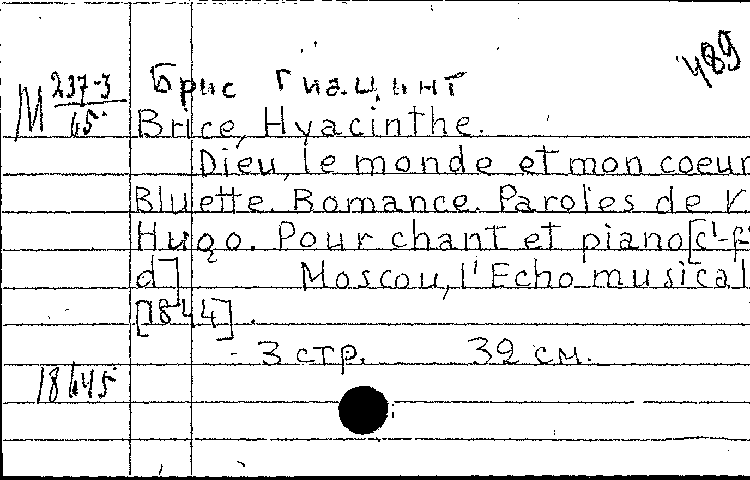 489
М 237-3/65
Брис Гиацинт
Brice, Hyacinthe.
Dieu, le monde et mon coeur
Bluette. Romance. Paroles de V
Hugo. Pour chant et piano [c'-f²
d] Moscou, l'Echo musical
[1844].
3 стр. 32 см.
18645